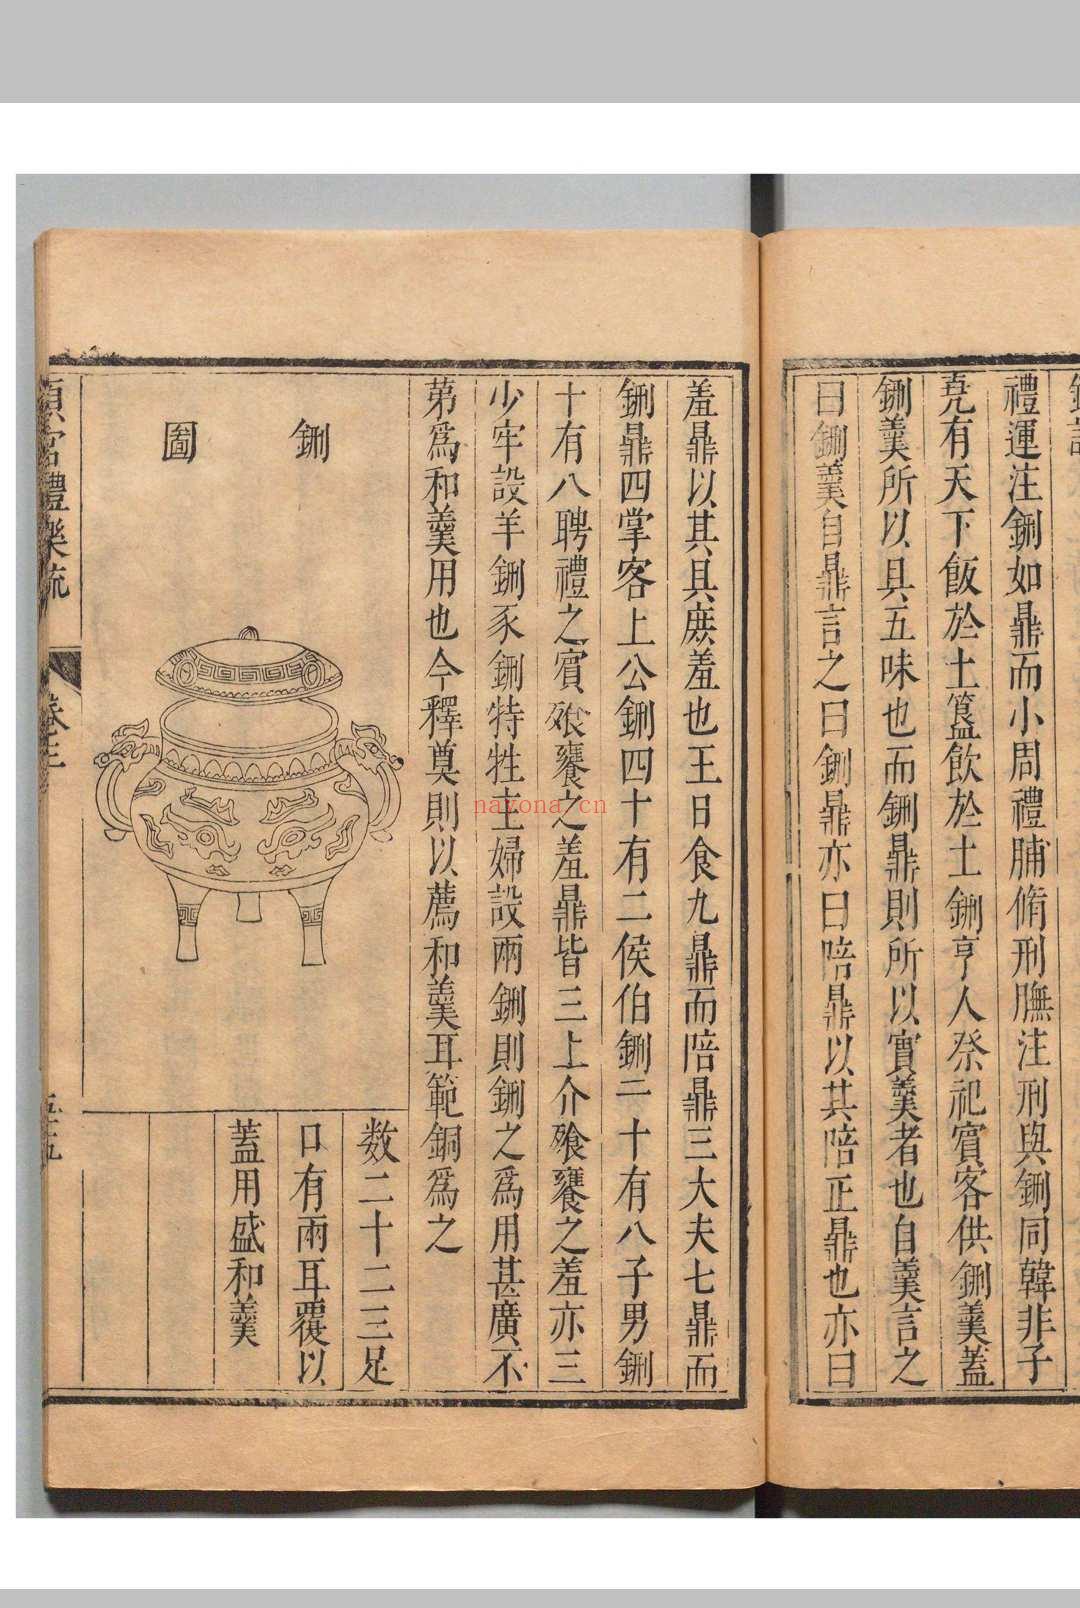 禮運注鉶如鼎而小周禮脯脩刑膴注刑與鉶同韓非子
堯有天下飯於土簋飲於土鉶亨人祭祀賓客供鉶羹蓋
鉶羹所以具五味也而鉶鼎則所以實羹者也自羹言之
曰鉶羹自鼎言之曰鉶鼎亦曰陪鼎以其陪正鼎也亦曰
羞鼎以其具庶羞也王日食九鼎而陪鼎三大夫七鼎而
鉶鼎四掌客上公鉶四十有二侯伯鉶二十有八子男鉶
十有八聘禮之賓飱饔之羞鼎皆三上介飱饔之羞亦三
少牢設羊鉶豕鉶特牲主婦設兩鉶則鉶之為用甚廣不
苐爲和羹用也今釋奠則以薦和羹耳範銅爲之
鉶
圖
数二十二三足
口有兩耳覆以
蓋用盛和羹
頖宮禮樂疏
卷三
五十五
nayona.cn